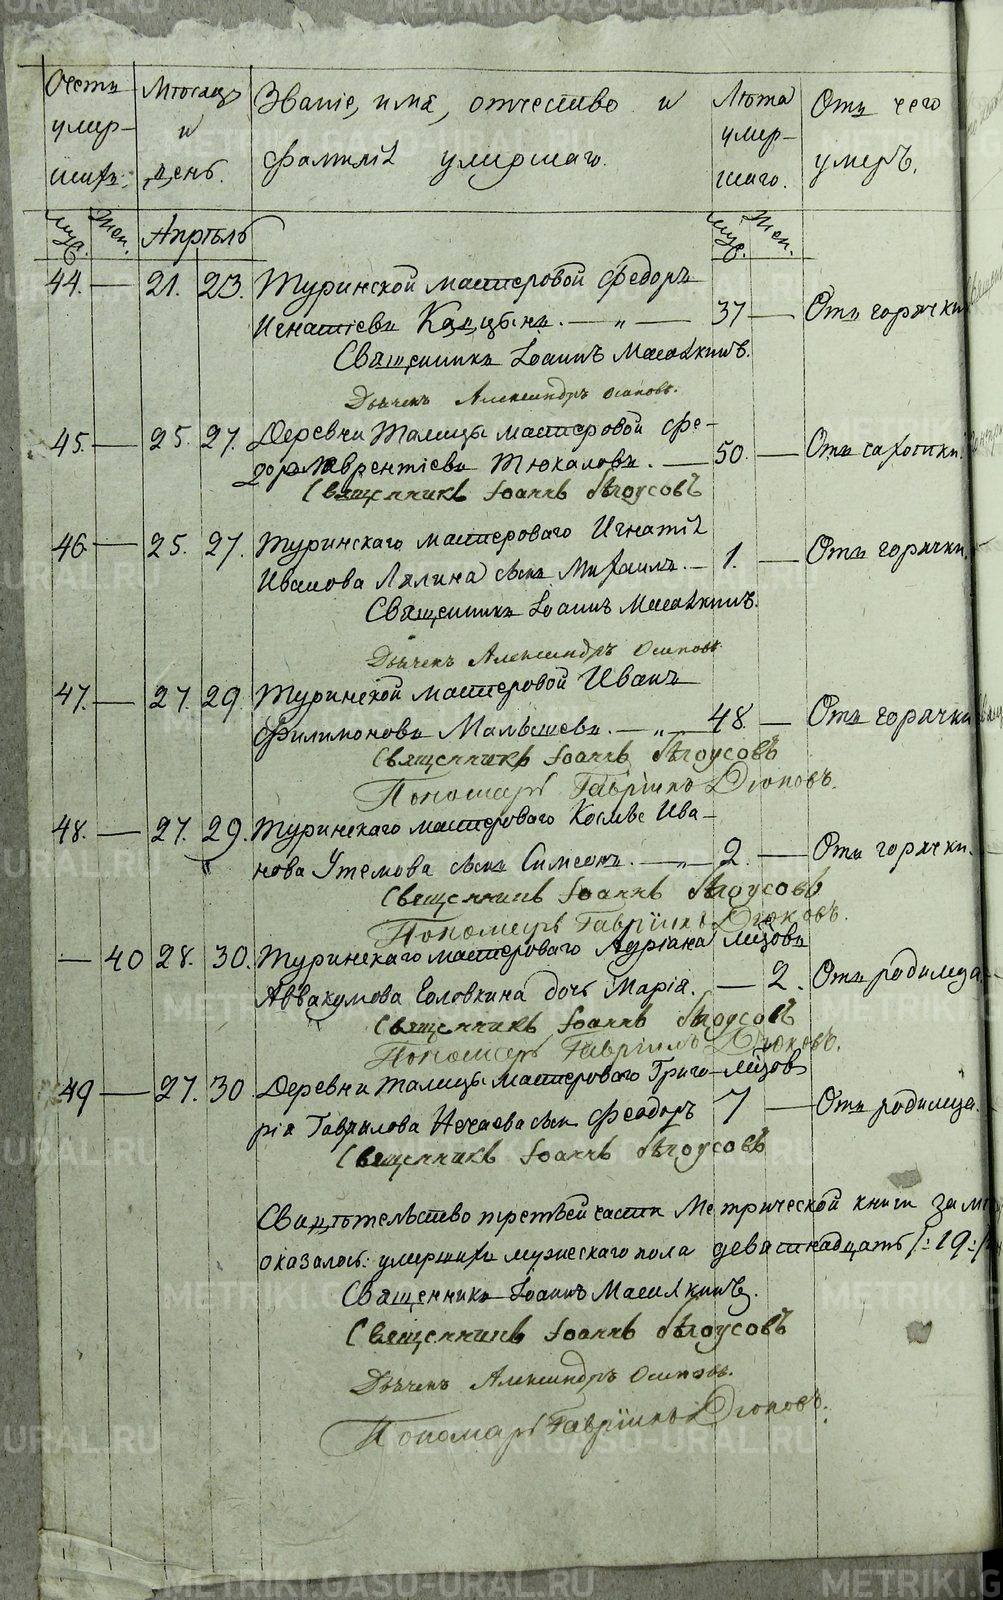 Счетъ умер- шихъ.
Мѣсяцъ и день.
Званіе, имя, отчество и фамилія умершаго.
Лѣта умер- шаго.
Отъ чего умеръ.
Муж. Жен. Апрѣль Муж. Жен.
44. — 21. 23. Туринской мастеровой Федоръ
Игнатіевъ — „ — 37 — Отъ горячки
Священникъ Іоаннъ
Дьячекъ Александръ Осиповъ.
45. — 25. 27. Деревни Талицы мастеровой Фе-
доръ Лаврентіевъ Тюкаловъ. — 50. — Отъ сухотки.
Священникъ Іоаннъ Бѣлоусовъ
46 — 25. 27. Туринскаго мастероваго Игнатія
Иванова Лялина сынъ Михаилъ. — 1. — Отъ горячки.
Священникъ Іоаннъ
Дьячекъ Александръ Осиповъ
47. — 27. 29. Туринской мастеровой Иванъ
Филимоновъ Малышевъ. — „ — 48. — Отъ горячки
Священникъ Іоаннъ Бѣлоусовъ
Пономарь Гавріилъ Дюковъ.
48. — 27. 29. Туринскаго мастероваго Космы Ива-
нова Утемова сынъ Симеонъ. — „ — 2. — Отъ горячки.
Священникъ Іоаннъ Бѣлоусовъ
Пономарь Гавріилъ Дюковъ.
— 40 28. 30. Туринскаго мастероваго Адріана
Аввакумова Головкина дочь Марія. — 2. Отъ родимца
Священникъ Іоаннъ Бѣлоусовъ
Пономарь Гавріилъ Дюковъ.
49 — 27. 30 Деревни Талицы мастероваго Григо-
рія Гаврилова Нечаева сынъ Феодоръ 7 — Отъ родимца
Священникъ Іоаннъ Бѣлоусовъ
Свидѣтельство третьей части Метрической книги за
оказалось: умершихъ мужескаго пола девятнадцать /:19:/
Священникъ Іоаннъ
Священникъ Іоаннъ Бѣлоусовъ
Дьячекъ Александръ Осиповъ.
Пономарь Гавріилъ Дюковъ.
METRIKI.GASO-URAL.RU